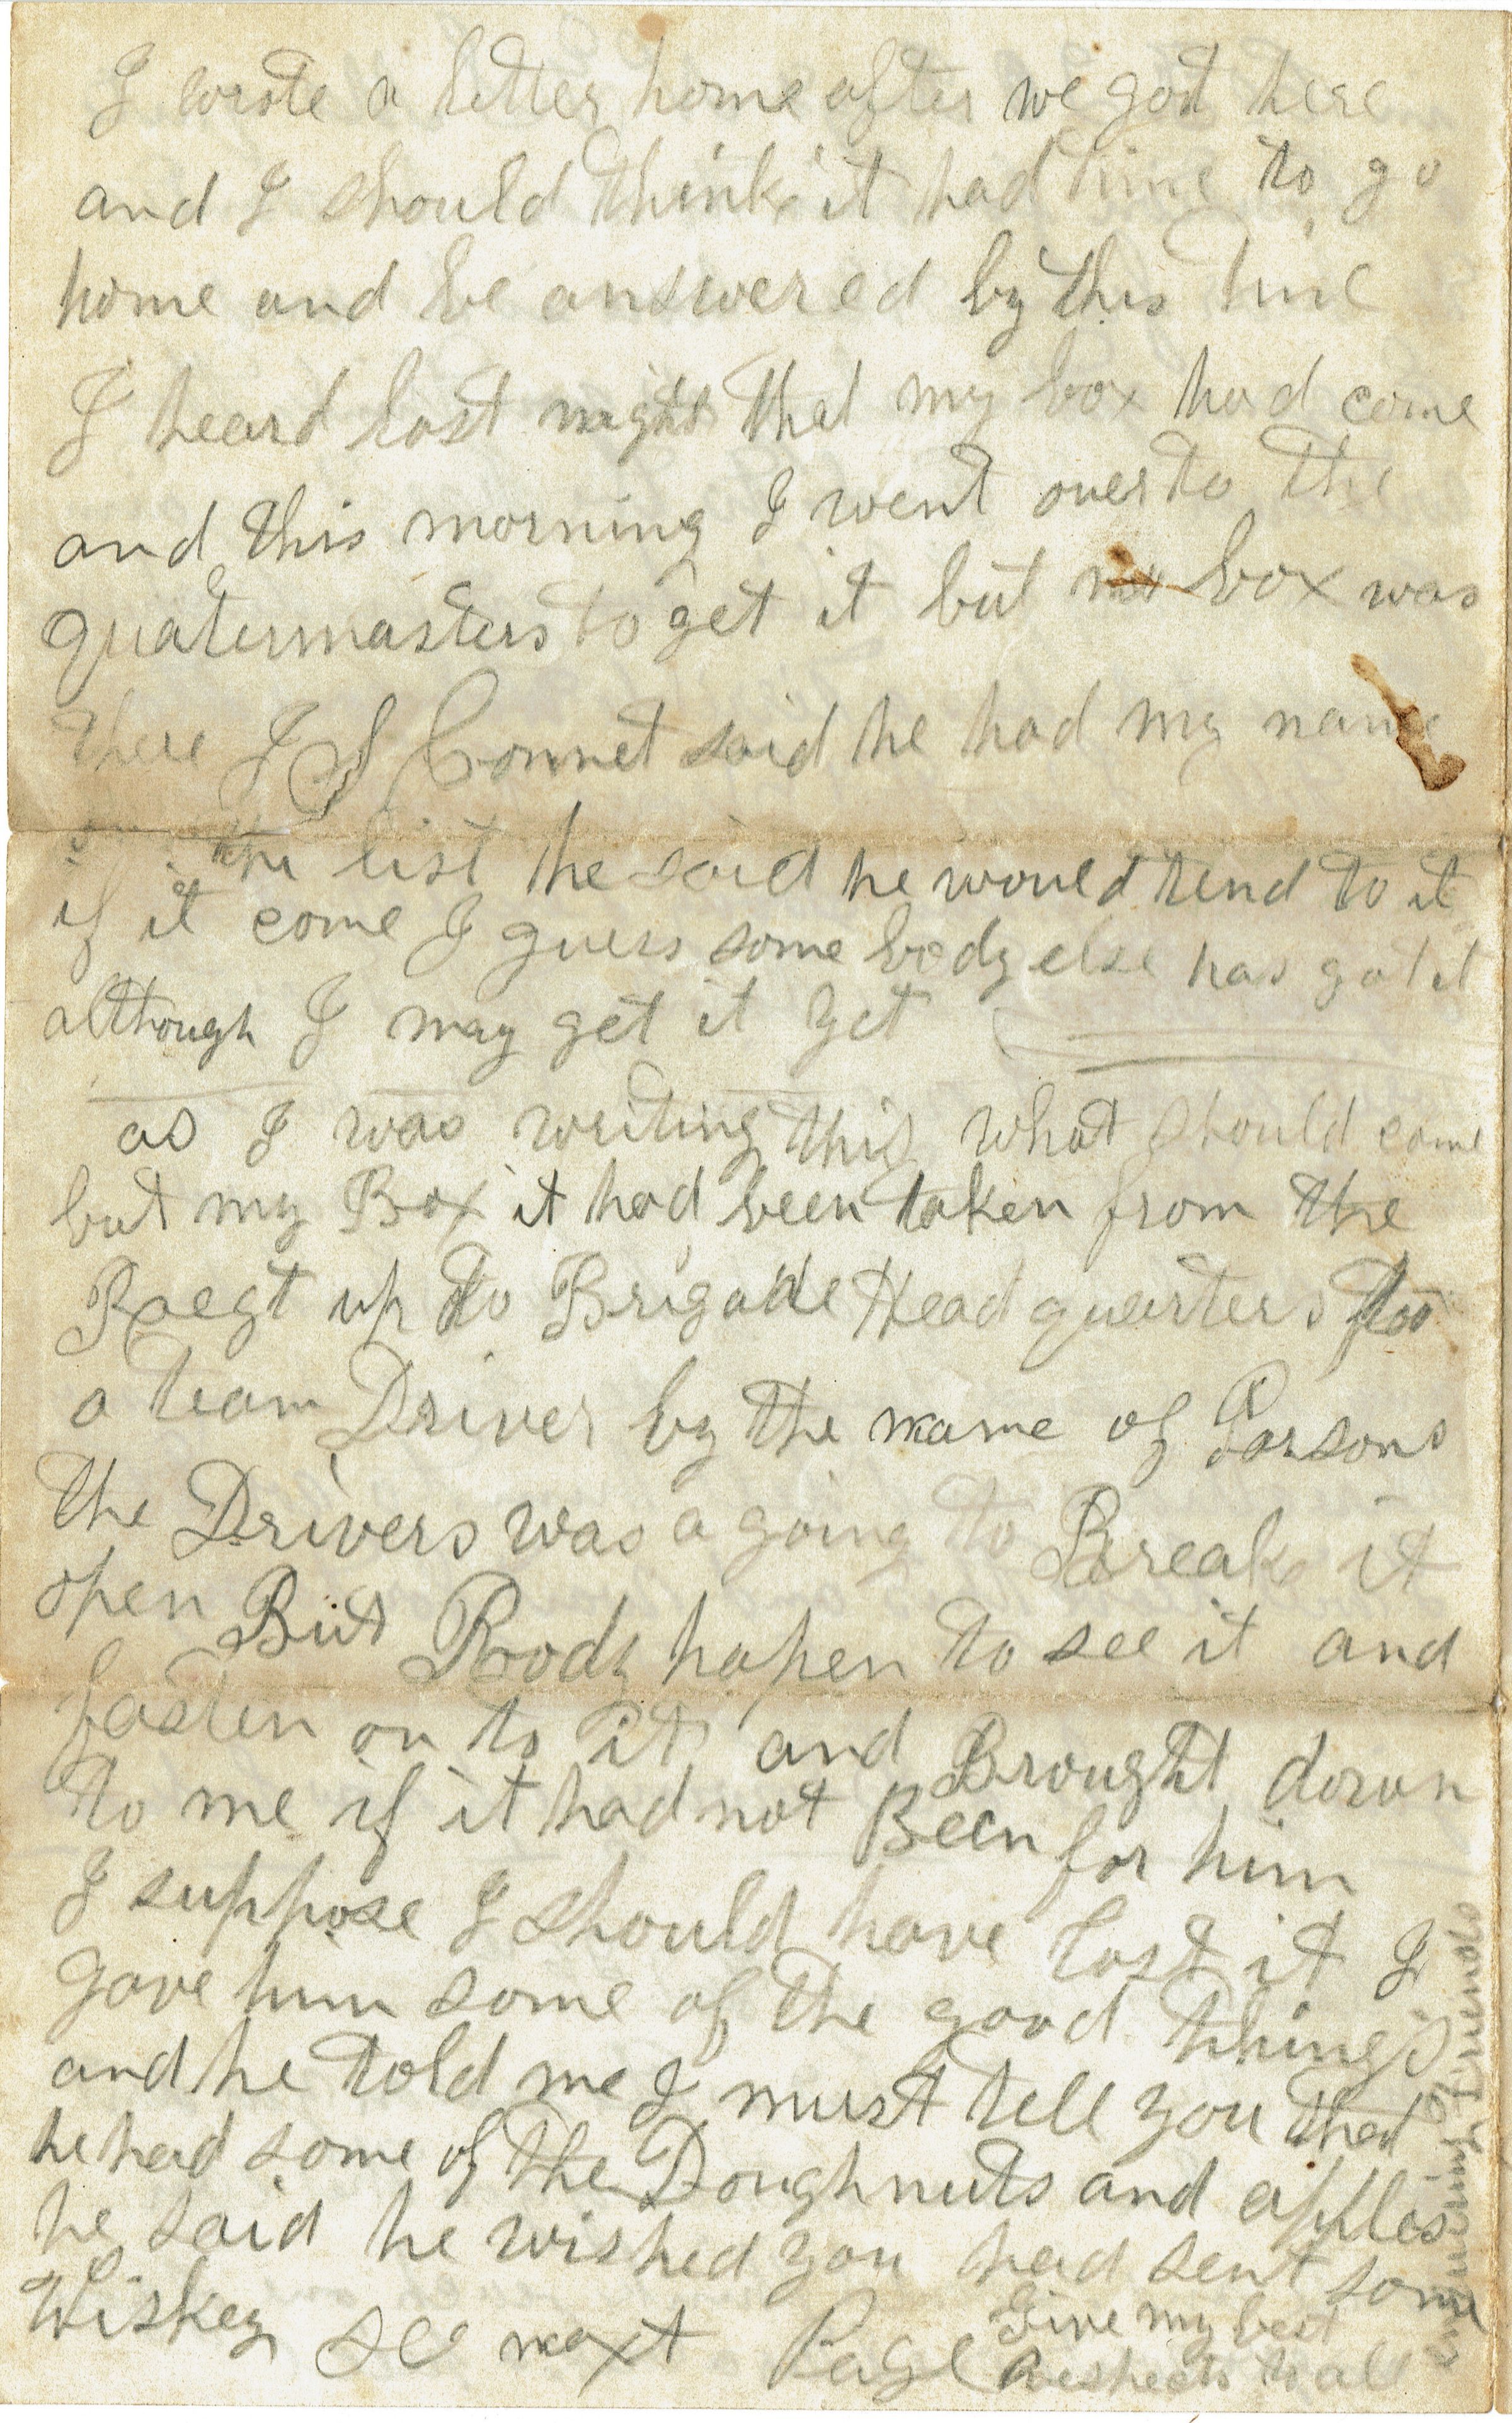 I wrote a letter home after we got here
and I should think it had time to go
home and be answered by this time
I heard last night that my box had come
and this morning I went over to the
quatermasters to get it but no box was
there J S Connet said he had my name
on the list he said he would tend to it
if it come I guess some body else has got it
although I may get it yet
as I was writing this what should come
but my Box it had been taken from the
Raegt up to Brigade Head quarters too
a team Driver by the name of Parsons
the Drivers was a going to Break it
open But Rody hapen to see it and
fasten on to it and Brought down
to me if it had not Been for him
I suppose I should have lost it I
gave him some of the good things
and he told me I must tell you that
he had some of the Doughnuts and apples
he said he wished you had sent some
Wiskey se next Page
Give my best
Respects to all
enquering Friends